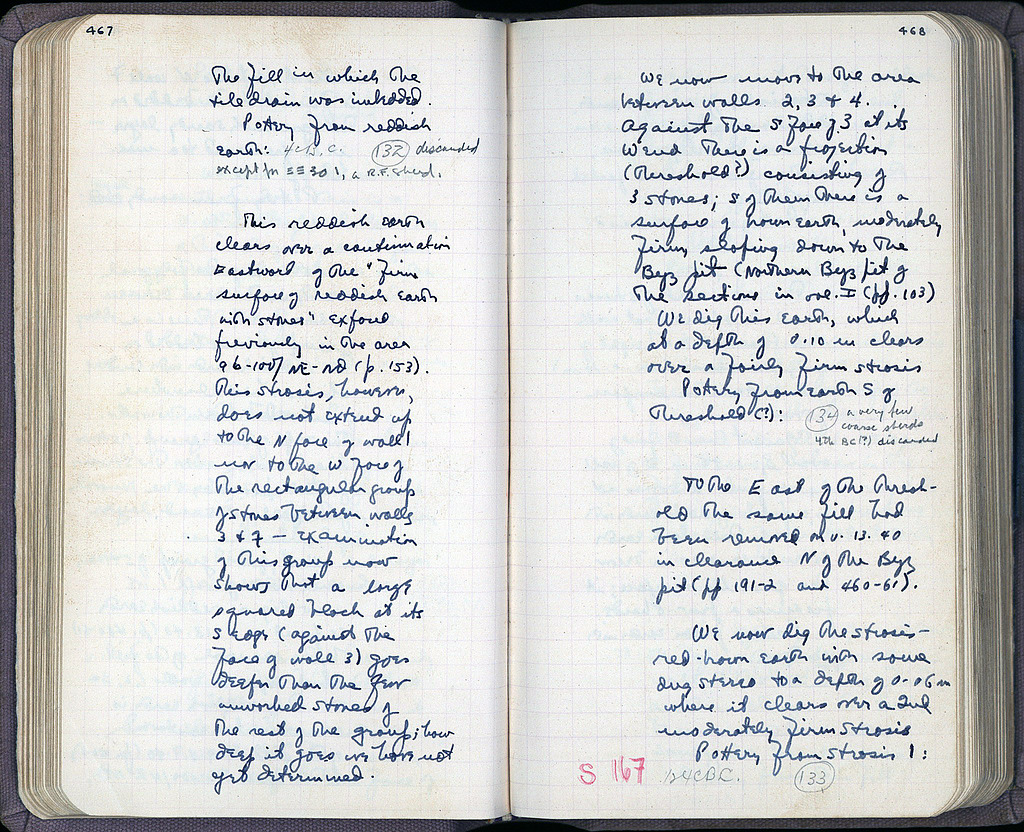 467
The fill in which the
tile drain was imbedded.
Pottery from reddish
earth: 4c B.C. 132 discarded
except for ΣΣ 301, a R.F. sherd.
This reddish earth
clears over a continuation
Eastward of the "firm
surface of reddish earth
with stones" exposed
previously in the area
96-100/ NE-ND (p. 153).
This strosis, however,
does not extend up
to the N face of wall 1
nor to the W face of
the rectangular group
of stones between walls
3 & 7 — examination
of this group now
shows that a large
squared block at its
S edge (against the
face of wall 3) goes
deeper than the few
unworked stones of
the rest of the group; how
deep it goes we have not
yet determined.
468
We now move to the area
between walls 2, 3 & 4.
Against the S face of 3 at its
W end there is a projection
(threshold?) consisting of
3 stones; S of them there is a
surface of brown earth, moderately
firm sloping down to the
Byz pit (Northern Byz pit of
the sections in vol. I (pp. 103)
We dig this earth, which
at a depth of 0.10 m clears
over a fairly firm strosis
Pottery from earth S of
threshold (?): 134 a very few
coarse sherds
4th BC(?) discarded
To the East of the thresh-
old the same fill had
been removed on V. 13. 40
in clearance N of the Byz
pit (pp 191-2 and 460-61).
We now dig the strosis -
red-brown earth with some
dug stereo to a depth of 0.06 m
where it clears over a 2nd
moderately firm strosis
Pottery from strosis 1:
S 167 4c B.C. 133